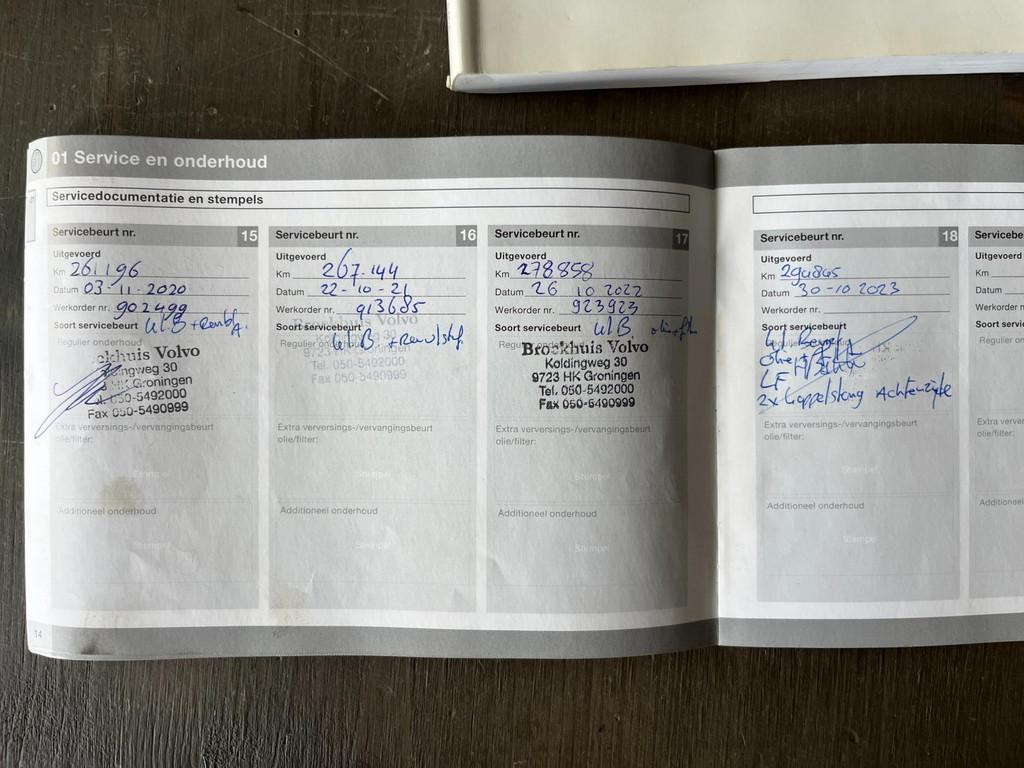 01 Service en onderhoud
Servicedocumentatie en stempels
Servicebeurt nr. 15
Uitgevoerd
Km 261196
Datum 03-11-2020
Werkorder nr. 902499
Soort servicebeurt
Regulier onderhoud
ckhuis Volvo
ingweg 30
HK Groningen
Tel. 050-5492000
Fax 050-5490999
Extra verversings-/vervangingsbeurt
olie/filter:
Stempel
Additioneel onderhoud
Stempel
14
Servicebeurt nr. 16
Uitgevoerd
Km 267.144
Datum 22-10-21
Werkorder nr. 913685
Soort servicebeurt
Regulier onderhoud
Brockhuis Volvo
9723 HK Groningen
Tel. 050-5492000
Fax 050-5490999
Extra verversings-/vervangingsbeurt
olie/filter:
Stempel
Additioneel onderhoud
Stempel
Servicebeurt nr. 17
Uitgevoerd
Km 278858
Datum 26 10 2022
Werkorder nr. 923923
Soort servicebeurt
Broekhuis Volvo
Koldingweg 30
9723 HK Groningen
Tel. 050-5492000
Fax 050-5490999
Extra verversings-/vervangingsbeurt
olie/filter:
Stempel
Additioneel onderhoud
Stempel
Servicebeurt nr. 18
Uitgevoerd
Km 294845
Datum 30-10-2023
Werkorder nr.
Soort servicebeurt
2x koppelstang Achterzijde
Extra verversings-/vervangingsbeurt
olie/filter:
Stempel
Additioneel onderhoud
Stempel
Servicebe
Uitgevoerd
Km
Datum
Werkorder
Soort serv
Regulier on
Extra verve
olie/filter:
Additioneel